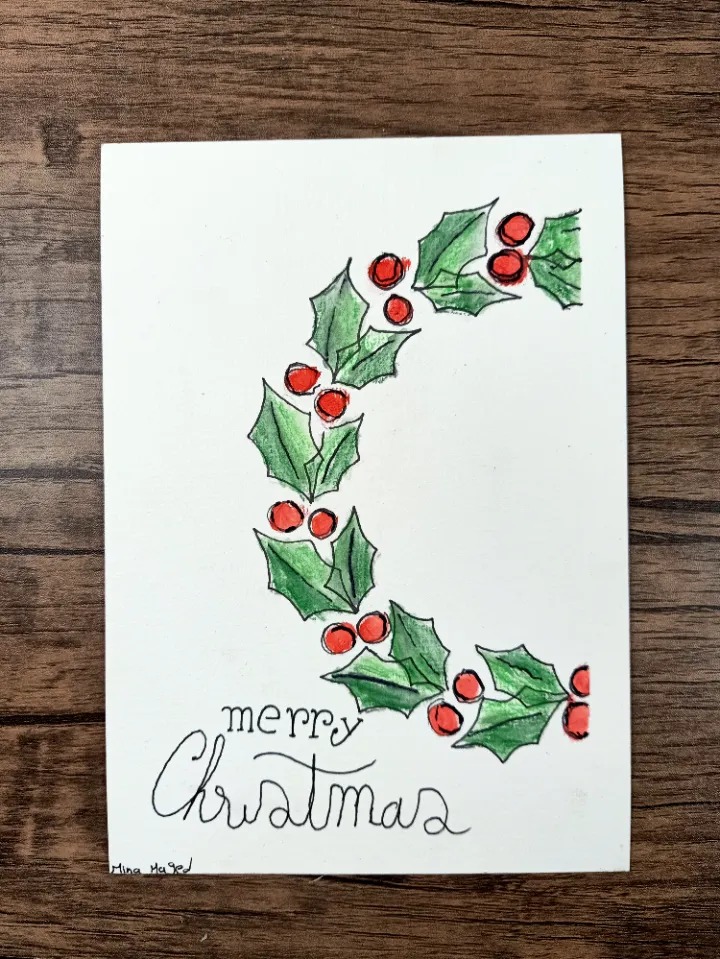 merry
Christmas
Mina Maged